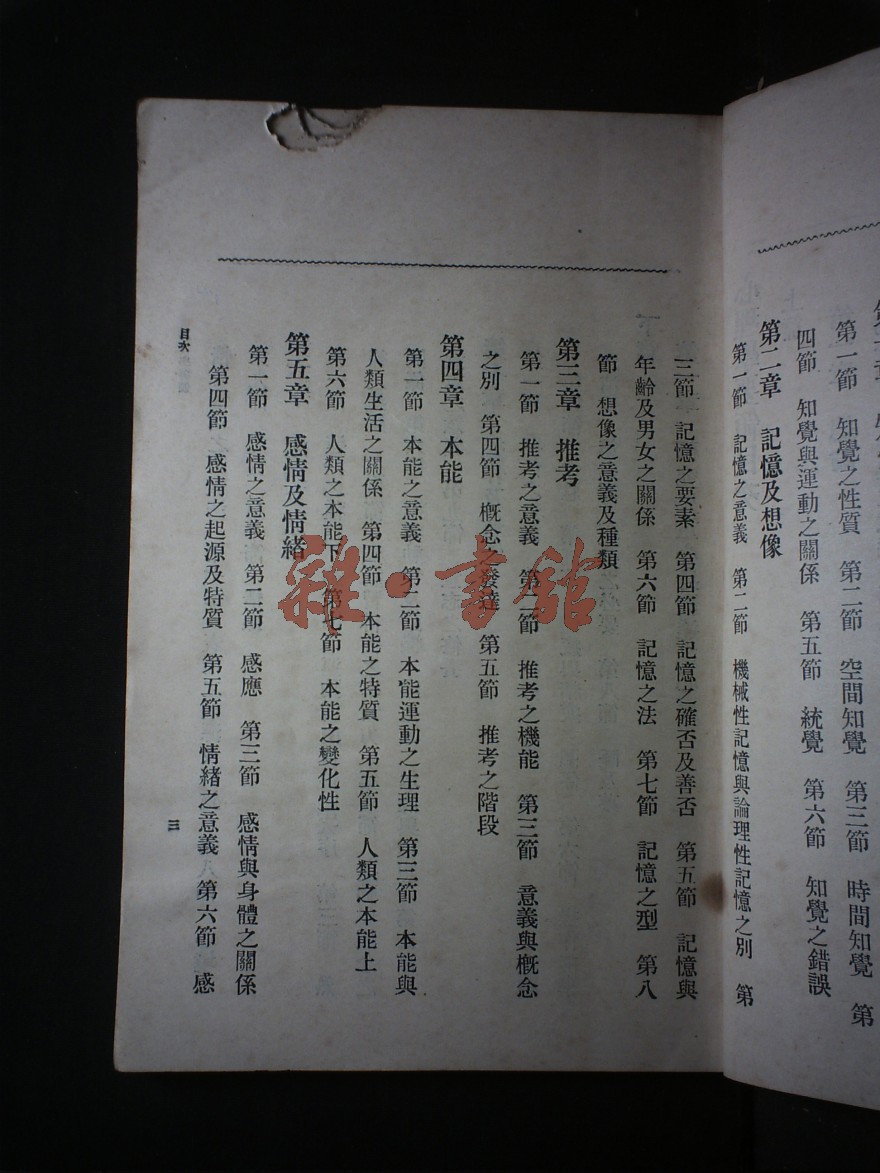 第一節　知覺之性質　第二節　空間知覺　第三節　時間知覺　第
四節　知覺與運動之關係　第五節　統覺　第六節　知覺之錯誤
第二章　記憶及想像
第一節　記憶之意義　第二節　機械性記憶與論理性記憶之別　第
三節　記憶之要素　第四節　記憶之確否及善否　第五節　記憶與
年齡及男女之關係　第六節　記憶之法　第七節　記憶之型　第八
節　想像之意義及種類
第三章　推考
第一節　推考之意義　第二節　推考之機能　第三節　意義與概念
之別　第四節　概念之發達　第五節　推考之階段
第四章　本能
第一節　本能之意義　第二節　本能運動之生理　第三節　本能與
人類生活之關係　第四節　本能之特質　第五節　人類之本能上
第六節　人類之本能下　第七節　本能之變化性
第五章　感情及情緒
第一節　感情之意義　第二節　感應　第三節　感情與身體之關係
第四節　感情之起源及特質　第五節　情緒之意義　第六節　感
目次
三
雜·書館